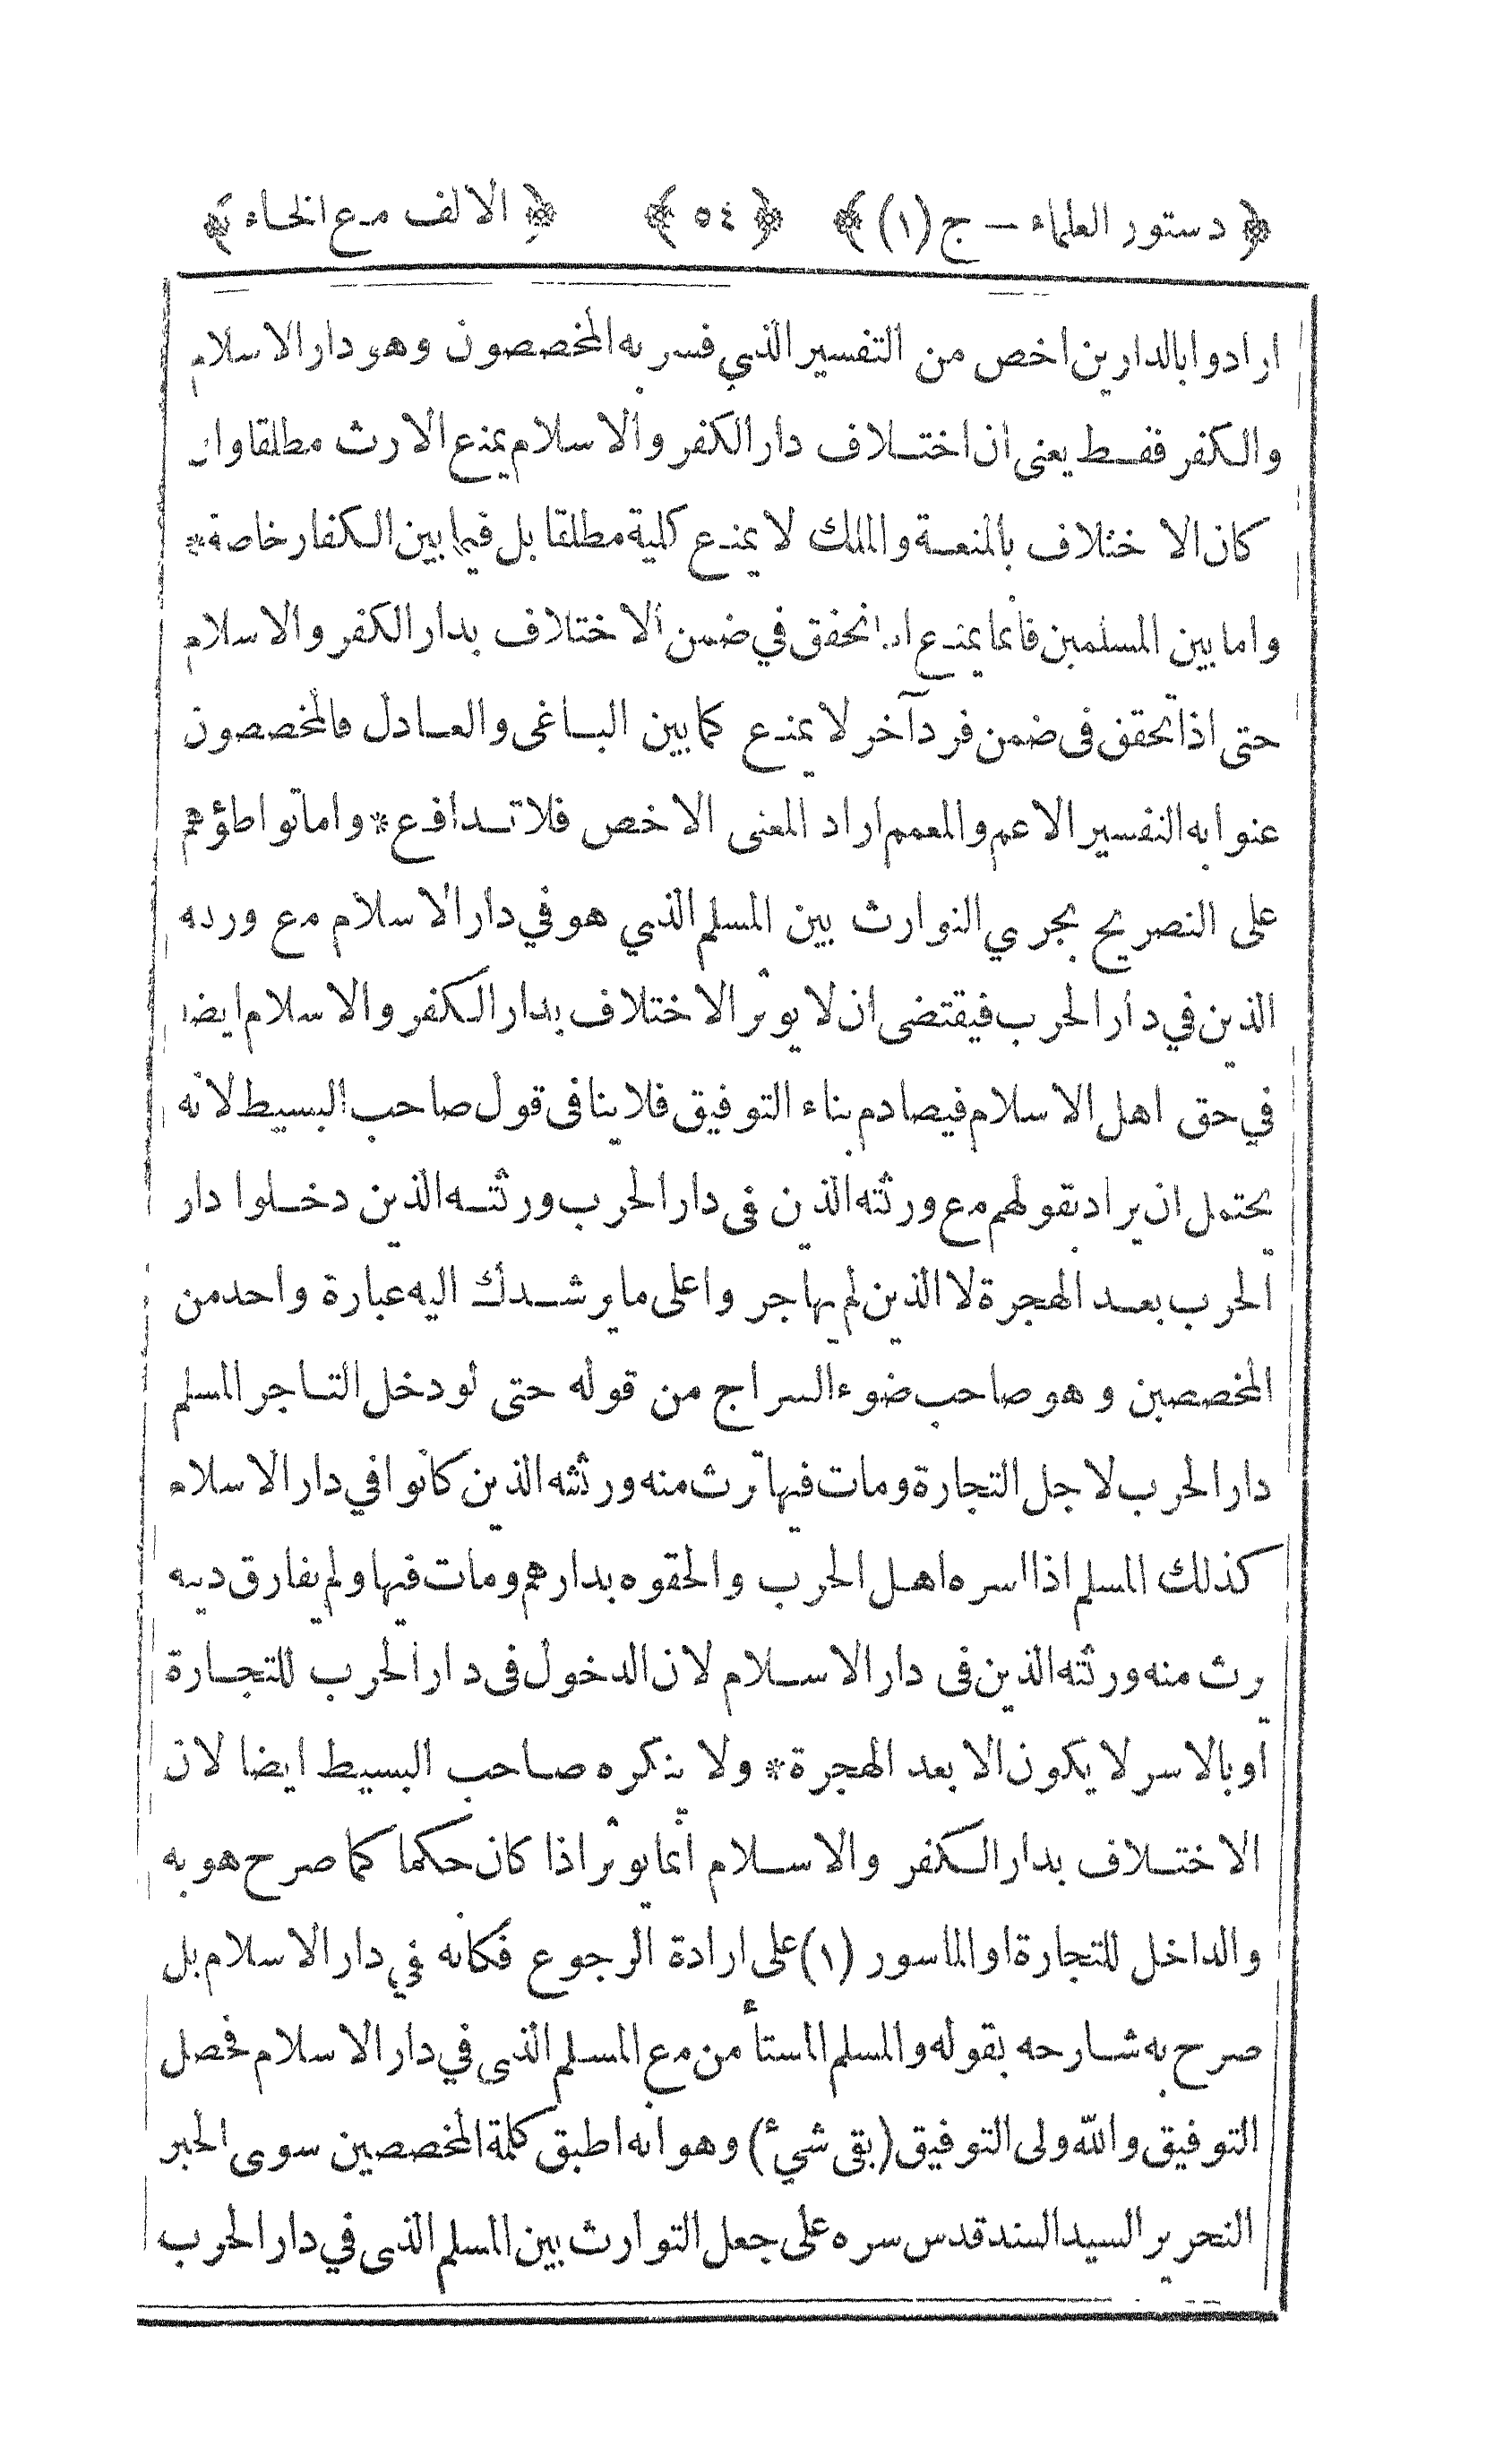 ﴿ دستور العلماء – ج (١) ﴾ ﴿ ٥٤ ﴾ ﴿ الالف مع الخاء ﴾
ارادوا بالدارين اخص من التفسير الذي فسر به المخصصون وهو دار الاسلام
والكفر فقط يعنى ان اختلاف دار الكفر والاسلام يمنع الارث مطلقا وان
كان الاختلاف بالمنعة والملك لا يمنع كلية مطلقا بل فيما بين الكفار خاصة *
واما بين المسلمين فانما يمنع اذا تحقق في ضمن الاختلاف بدار الكفر والاسلام
حتى اذا تحقق فى ضمن فرد آخر لا يمنع كما بين الباغى والعادل فالمخصصون
عنوا به التفسير الاعم والمعمم اراد المعنى الاخص فلا تدافع * واما تواطؤهم
على التصريح بجري التوارث بين المسلم الذي هو في دار الاسلام مع ورثه
الذين في دار الحرب فيقتضى ان لا يوثر الاختلاف بدار الكفر والاسلام ايضا
في حق اهل الاسلام فيصادم بناء التوفيق فلا ينافى قول صاحب البسيط لانه
يحتمل ان يراد بقولهم مع ورثته الذين فى دار الحرب ورثته الذين دخلوا دار
الحرب بعد الهجرة لا الذين لم يهاجروا على ما يرشدك اليه عبارة واحد من
المخصصين وهو صاحب ضوء السراج من قوله حتى لو دخل التاجر المسلم
دار الحرب لاجل التجارة ومات فيها ترث منه ورثته الذين كانوا في دار الاسلام
كذلك المسلم اذا اسره اهل الحرب والحقوه بدارهم ومات فيها ولم يفارق دينه
يرث منه ورثته الذين فى دار الاسلام لان الدخول فى دار الحرب للتجارة
او بالاسر لا يكون الا بعد الهجرة * ولا ينكره صاحب البسيط ايضا لان
الاختلاف بدار الكفر والاسلام انما يوثر اذا كان حكما كما صرح هو به
والداخل للتجارة او الماسور (١) على ارادة الرجوع فكانه في دار الاسلام بل
صرح به شارحه بقوله والمسلم المستأمن مع المسلم الذى في دار الاسلام فحصل
التوفيق والله ولى التوفيق (بقى شيء) وهو انه اطبق كلمة المخصصين سوى الحبر
النحرير السيد السند قدس سره على جعل التوارث بين المسلم الذى في دار الحرب